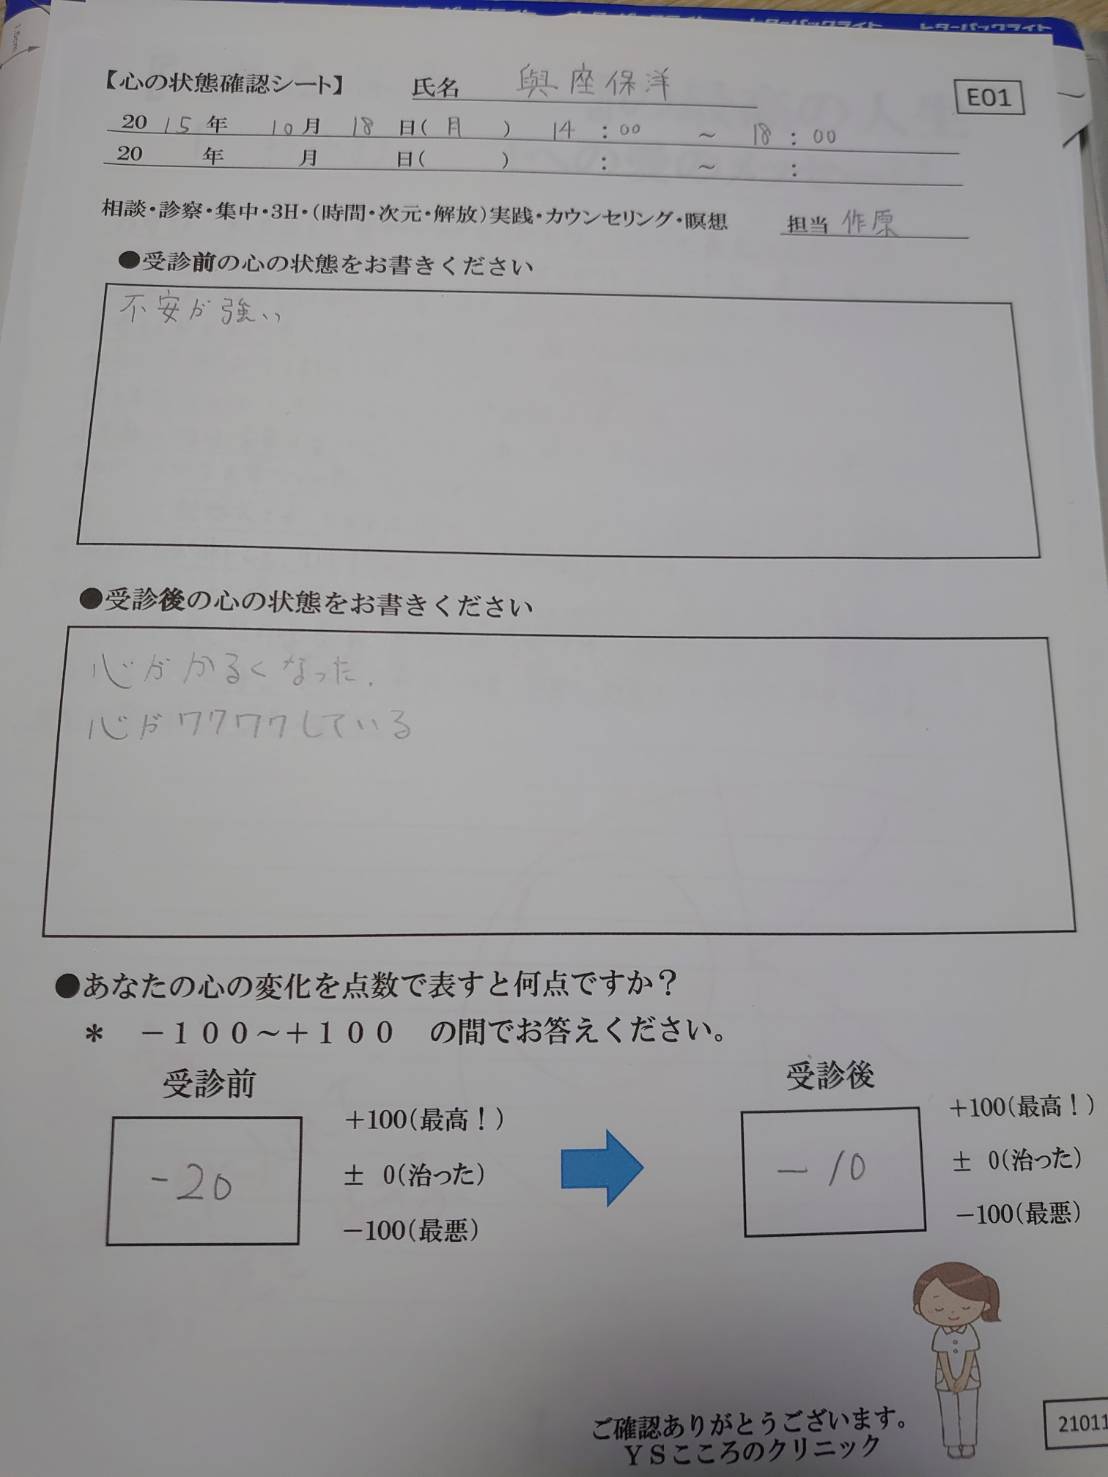 レターパックライト レターパックライト
【心の状態確認シート】 氏名 與座保洋 E01
2015年 10月 18日(月) 14:00 ～ 18:00
20 年 月 日( ) : ～ :
相談・診察・集中・3H・(時間・次元・解放)実践・カウンセリング・瞑想 担当 作原
●受診前の心の状態をお書きください
不安が強い
●受診後の心の状態をお書きください
心がかるくなった.
心がワクワクしている
●あなたの心の変化を点数で表すと何点ですか？
＊ －１００～＋１００ の間でお答えください。
受診前 受診後
+100(最高！) +100(最高！)
-20 ± 0(治った) -10 ± 0(治った)
－100(最悪) －100(最悪)
ご確認ありがとうございます。
ＹＳこころのクリニック
21011